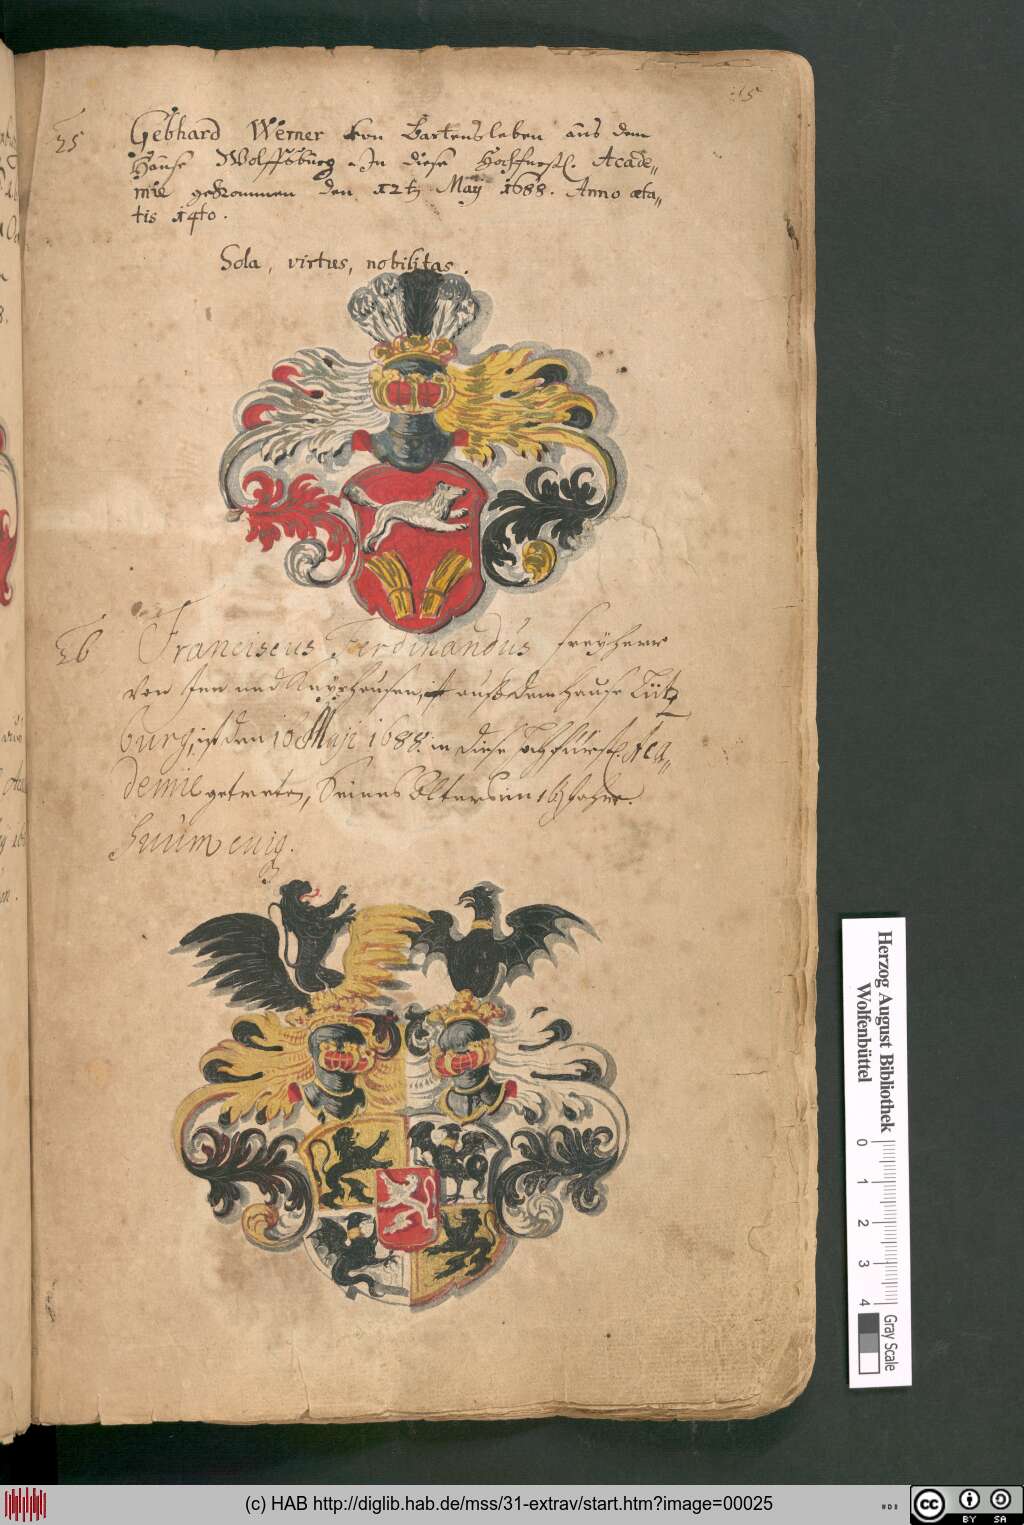 15
25 Gebhard Werner von Bartensleben aus dem
Hause Wolffsburg. In diese Hochfürstl. Acade„
mie gekommen den 12t May 1688. Anno æta„
tis 14to.
Sola, virtus, nobilitas.
26 Franciscus Ferdinandus freyherr
von Inn und Knyphausen, auß dem Hause Lütz
burg, ist den 16 Maji 1688. in diese Hochfürstl. Aca„
demie getreten, Seines Alters im Jahre.
Suum cuiq.
Herzog August Bibliothek
Wolfenbüttel
0 1 2 3 4
Gray Scale
(c) HAB http://diglib.hab.de/mss/31-extrav/start.htm?image=00025
cc BY SA